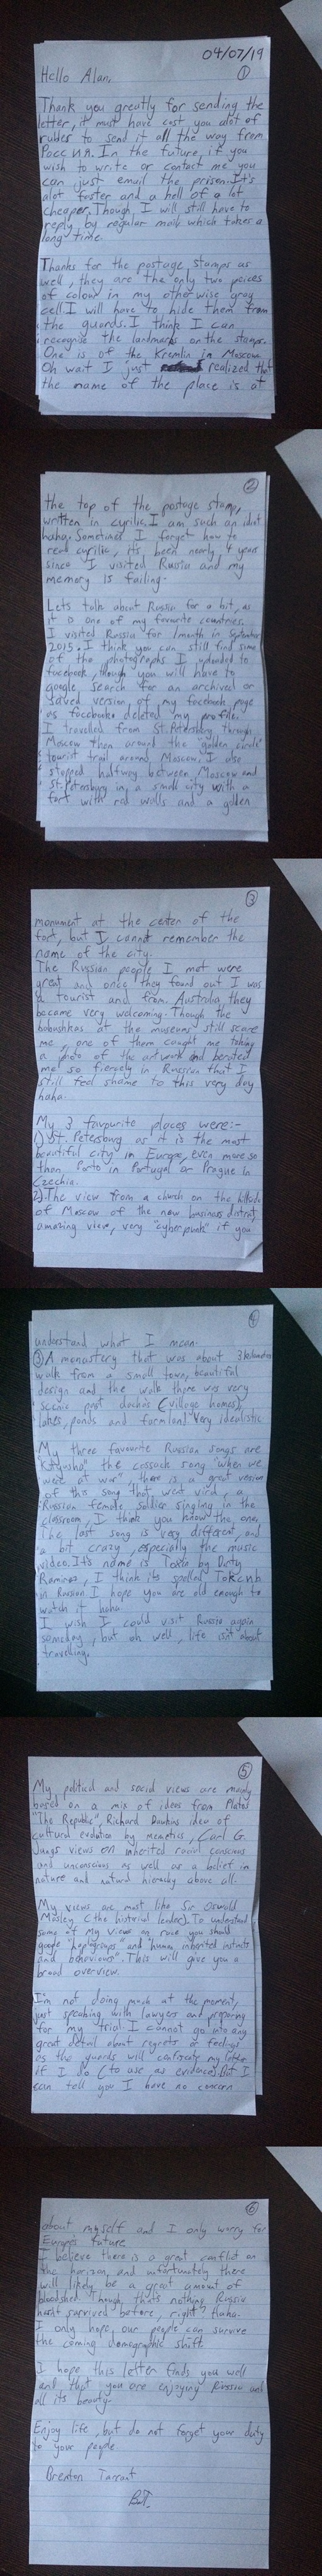 04/07/19
①
Hello Alan,
Thank you greatly for sending the
letter, it must have cost you alot of
rubles to send it all the way from
Росс ия. In the future if you
wish to write or contact me you
can just email the prison. It's
alot faster and a hell of a lot
cheaper. Though I will still have to
reply by regular mail which takes a
long time.
Thanks for the postage stamps as
well, they are the only two peices
of colour in my otherwise gray
cell I will have to hide them from
the guards. I think I can
recognise the landmarks on the stamps.
One is of the Kremlin in Moscow.
Oh wait I just realized that
the name of the place is at
②
the top of the postage stamp,
written in cyrilic. I am such an idiot
haha. Sometimes I forget how to
read cyrilic, it's been nearly 4 years
since I visited Russia and my
memory is failing.
Lets talk about Russia for a bit, as
it is one of my favourite countries.
I visited Russia for 1 month in September
2015. I think you can still find some
of the photographs I uploaded to
facebook, though you will have to
google search for an archived or
saved version of my facebook page
as facebook deleted my profile.
I travelled from St. Petersburg through
Moscow then around the "golden circle"
tourist trail around Moscow. I also
stopped halfway between Moscow and
St. Petersburg in a small city with a
fort with red walls and a golden
③
monument at the center of the
fort, but I cannot remember the
name of the city.
The Russian people I met were
great and once they found out I was
a tourist and from Australia they
became very welcoming. Though the
babushkas at the museums still scare
me, one of them caught me taking
a photo of the artwork and berated
me so fiercely in Russian that I
still feel shame to this very day
haha.
My 3 favourite places were:-
1) St. Petersburg as it is the most
beautiful city in Europe, even more so
than Porto in Portugal or Prague in
Czechia.
2) The view from a church on the hillside
of Moscow of the new business district,
amazing view, very "cyberpunk" if you
④
understand what I mean.
③ A monastery that was about 3 kilometres
walk from a small town, beautiful
design and the walk there was very
scenic past dachas (village homes),
lakes, ponds and farmland. Very idealistic
My three favourite Russian songs are
"Katyusha" the cossack song "when we
went at war", there is a great version
of this song that went viral, a
Russian female soldier singing in the
classroom, I think you know the one.
The last song is very different, and
a bit crazy, especially the music
video. It's name is Toxin by Dirty
Ramirez, I think its spelled
in Russian I hope you are old enough to
watch it haha.
I wish I could visit Russia again
someday, but oh well, life isn't about
travelling.
⑤
My political and social views are mainly
based on a mix of ideas from Platos
"The Republic", Richard Dawkins idea of
cultural evolution by memetics, Carl G.
Jungs views on inherited racial conscious
and unconscious as well as a belief in
nature and natural hierachy above all.
My views are most like Sir Oswald
Mosley (the historical leader). To understand
some of my views on race you should
google "haplogroups" and "human inherited instincts
and behaviours". This will give you a
broad overview.
I'm not doing much at the moment,
just speaking with lawyers and preparing
for my trial. I cannot go into any
great detail about regrets or feelings
as the guards will confiscate my letter
if I do (to use as evidence). But I
can tell you I have no concern
⑥
about myself and I only worry for
Europes future.
I believe there is a great conflict on
the horizon, and unfortunately there
will likely be a great amount of
bloodshed. Though, that's nothing Russia
hasnt survived before, right? Haha.
I only hope our people can survive
the coming demographic shift.
I hope this letter finds you well
and that you are enjoying Russia and
all its beauty.
Enjoy life, but do not forget your duty
to your people.
Brenton Tarrant